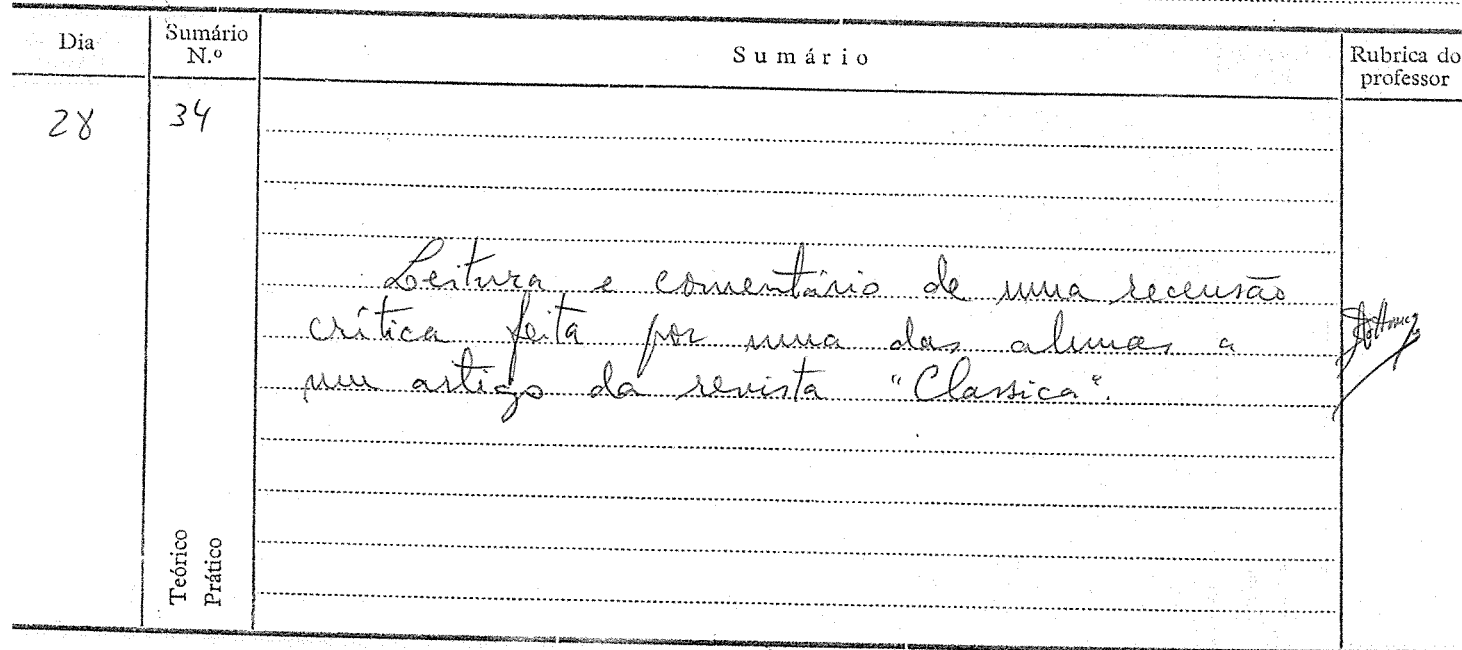 Dia
Sumário N.º
Sumário
Rubrica do professor
28
34
Leitura e comentário de uma recensão
crítica feita por uma das alunas a
um artigo da revista "Classica".
Teórico
Prático